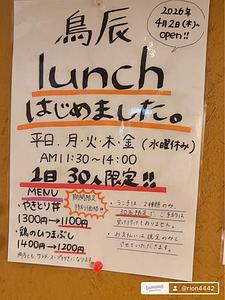 2026年
4月2日(木)~
open!!
鳥辰
lunch
はじめました。
平日.月・火・木・金(水曜休み)
AM11:30~14:00
1日30人限定!!
MENU
期間限定
特別価格!!
・やきとり丼
1300円→1100円
・鶏のひつまぶし
1400円→1200円
・ランチは、2種類のみ、
30名限定で、ご予約は
受け付けておりません。
・お支払いは現金のみと
させていただきます。
@rion4442